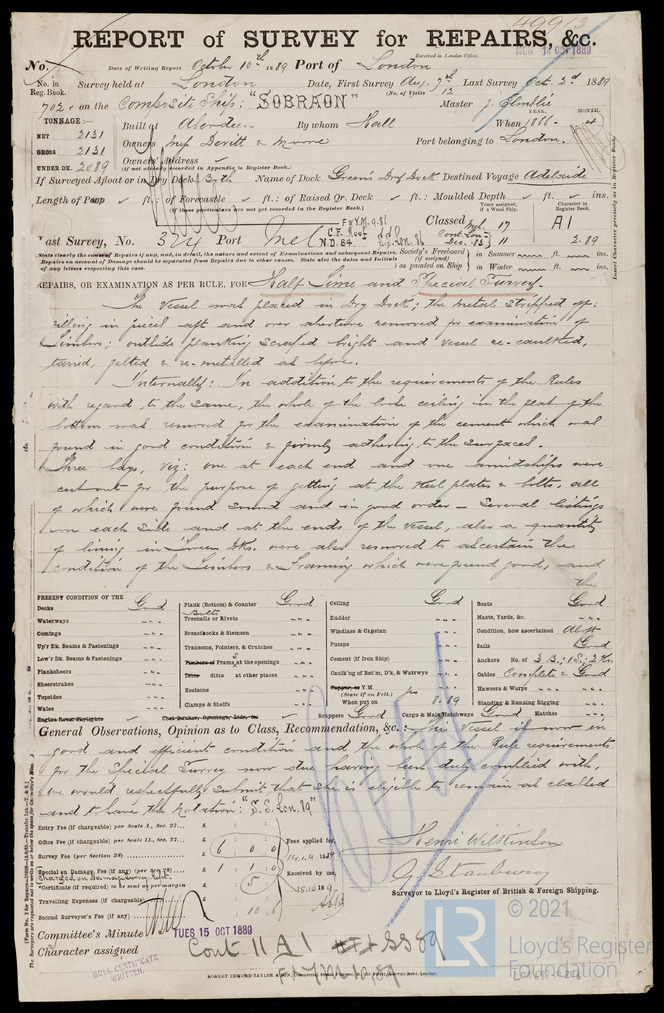 49913
REPORT of SURVEY for REPAIRS, &c.
Received in London Office,
14 OCT 1889
No. Date of Writing Report October 10th 1889 Port of London
No. in Reg. Book. Survey held at London Date, First Survey Aug. 7th Last Survey Oct. 2nd 1889
(No. of Visits 12
702 on the Composite Ship: "SOBRAON" Master J. Elmslie
TONNAGE:—
YEAR. MONTH.
NET 2131
Built at Aberdeen By whom Hall When 1866 - 4
GROSS 2131
Owners Mess Devitt & Moore Port belonging to London.
UNDER DK. 2089
Owners' Address
(if not already recorded in Appendix to Register Book.)
If Surveyed Afloat or in Dry Dock Both Name of Dock Green's Dry Dock Destined Voyage Adelaide
Length of Poop ft.: of Forecastle ft.: of Raised Qr. Deck ft.: Moulded Depth ft. ins.
(if these particulars are not yet recorded in the Register Book.)
Years assigned, if a Wood Ship.
Character in Register Book
Classed Mel. 17 A1
Cont. Lon. Dec. 83 11 2.89
Last Survey, No. 324 Port Mel
N.D. 84
Society's Freeboard (if assigned) as painted on Ship
in Summer ft. ins.
in Winter ft. ins.
State clearly the cause of Repairs if any, and, in detail, the nature and extent of Examinations and subsequent Repairs.
Repairs on account of Damage should be separated from Repairs due to other causes. State also the dates and initials of any letters respecting this case.
REPAIRS, OR EXAMINATION AS PER RULE, FOR Half Time and Special Survey.
The Vessel was placed in Dry Dock; the metal stripped off;
filling in pieces aft and over apertures removed for examination of
Timbers; outside planking scraped bright and vessel re-caulked,
tarred, felted & re-metalled as before.
Internally: In addition to the requirements of the Rules
with regard to the same, the whole of the loose ceiling in the flat of the
bottom was removed for the examination of the cement which was
found in good condition & firmly adhering to the surfaces.
Three bays, viz: one at each end and one amidships were
cut out for the purpose of getting at the Keel plates & bolts, all
of which were found sound and in good order - Several listings
on each side and at the ends of the Vessel, also a quantity
of lining in Tween Dks. were also removed to ascertain the
condition of the Timbers & Framing which were found good, and
the
PRESENT CONDITION OF THE
Decks Good
Waterways
Comings
Up'r Dk. Beams & Fastenings
Low'r Dk. Beams & Fastenings
Planksheers
Sheerstrakes
Topsides
Wales
Plank (Bottom) & Counter Good
Bolts
Treenails or Rivets
Breasthooks & Stemson
Transoms, Pointers, & Crutches
Timbers of Frames at the openings
Ditto ditto at other places
Keelsons
Clamps & Shelfs
Ceiling Good
Rudder
Windlass & Capstan
Pumps
Cement (if Iron Ship)
Caulk'ng of Bot'm, D'ks, & Watrwys
Copper, or Y.M.
(State if on Felt.)
When put on 8.89
Boats Good
Masts, Yards, &c.
Condition, how ascertained Aloft
Sails Good
Anchors No. of 3 B; 1 S; 2 K.
Cables Complete & Good
Hawsers & Warps
Standing & Running Rigging
Scuppers Good Cargo & Main Hatchways Good Hatches
General Observations, Opinion as to Class, Recommendation, &c.: This Vessel is now in
good and efficient condition and the whole of the Rule requirements
for the Special Survey now due having been duly complied with,
we would respectfully submit that she is eligible to remain as classed
and to have the notation: "S.S. Lon. 89"
Entry Fee (if chargeable) per Scale I., Sec. 27... £
Office Fee (if chargeable) per Scale II., Sec. 27... £
Survey Fee (per Section 28) £ 6 0 0
Special on Damage, Fee (if any) (per Sec. 28) £ 1 1 0
Certificate (if required) to be sent as per margin 5
Travelling Expenses (if chargeable) £
Second Surveyor's Fee (if any) £ 10.6
Fees applied for,
Received by me,
15.10.89
Henri Wilkinson
G. Stanbury
Surveyor to Lloyd's Register of British & Foreign Shipping.
Committee's Minute TUES 15 OCT 1889
Character assigned Cont 11 A1 SS 89
HULL CERTIFICATE WRITTEN.
LR
© 2021
Lloyd's Register
Foundation